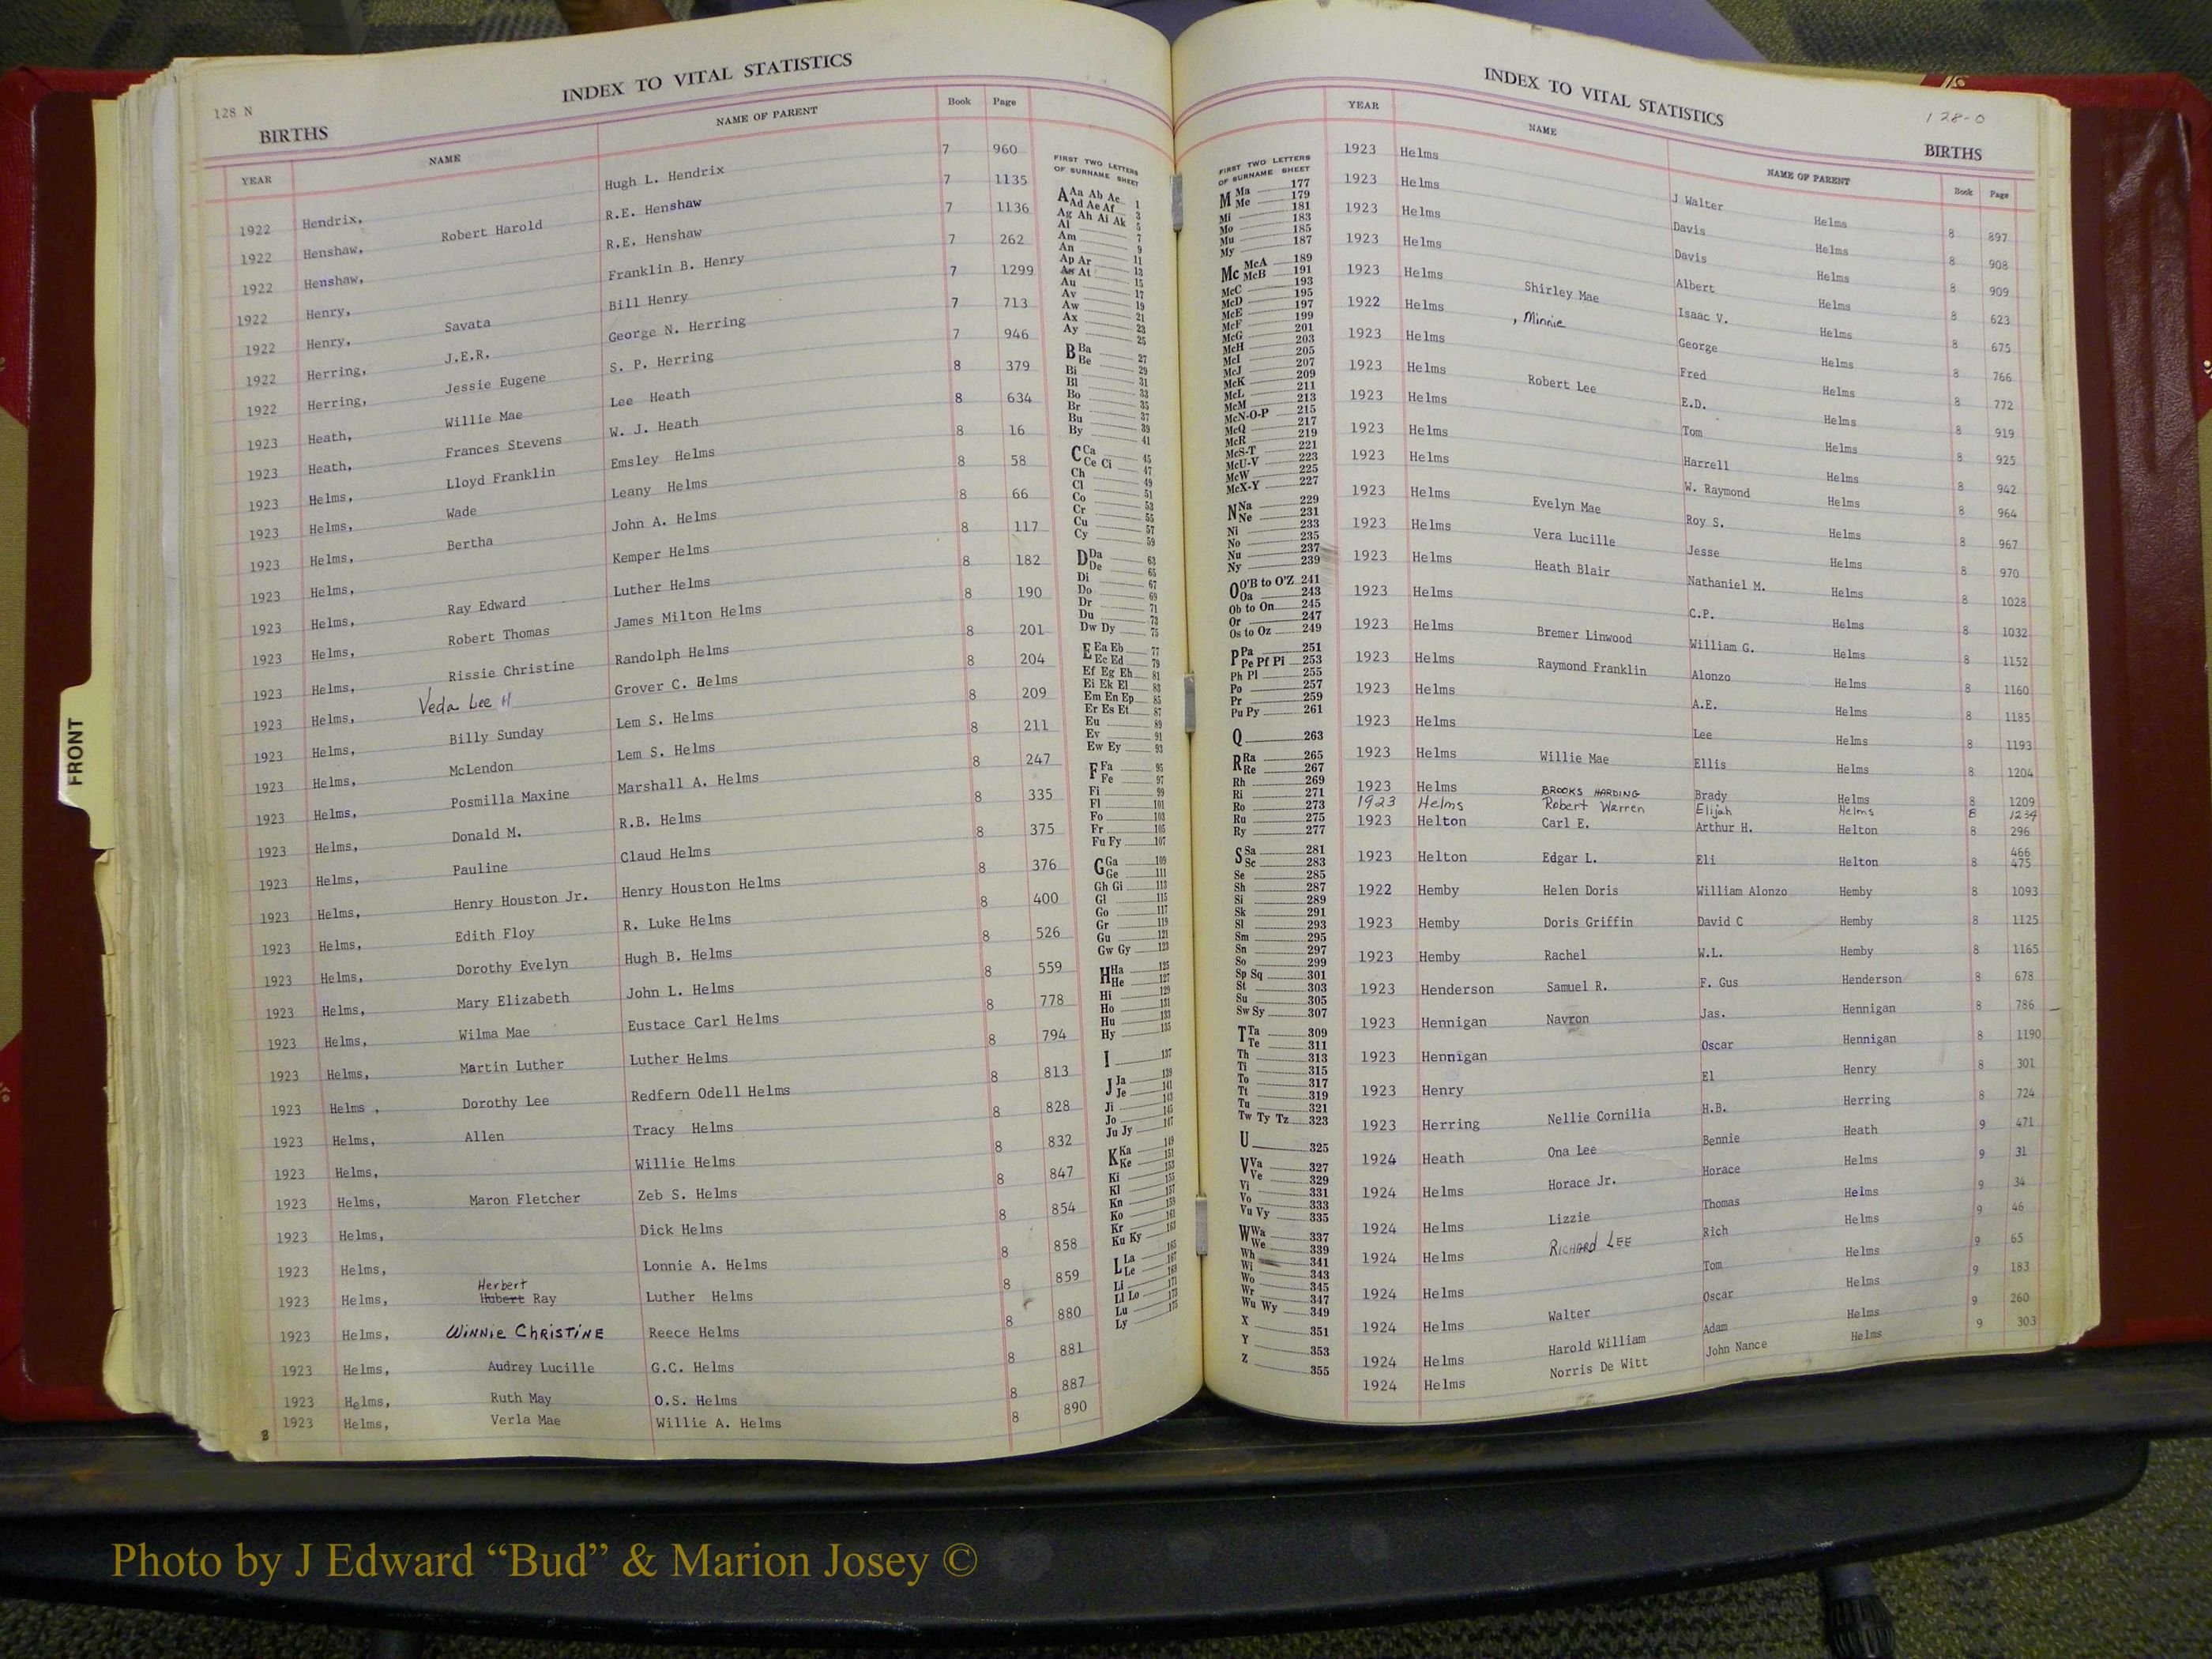 128 N
INDEX TO VITAL STATISTICS
BIRTHS
YEAR NAME NAME OF PARENT Book Page
1922 Hendrix, Hugh L. Hendrix 7 960
1922 Henshaw, Robert Harold R.E. Henshaw 7 1135
1922 Henshaw, R.E. Henshaw 7 1136
1922 Henry, Franklin B. Henry 7 262
1922 Henry, Savata Bill Henry 7 1299
1922 Herring, J.E.R. George N. Herring 7 713
1922 Herring, Jessie Eugene S. P. Herring 7 946
1923 Heath, Willie Mae Lee Heath 8 379
1923 Heath, Frances Stevens W. J. Heath 8 634
1923 Helms, Lloyd Franklin Emsley Helms 8 16
1923 Helms, Wade Leany Helms 8 58
1923 Helms, Bertha John A. Helms 8 66
1923 Helms, Kemper Helms 8 117
1923 Helms, Ray Edward Luther Helms 8 182
1923 Helms, Robert Thomas James Milton Helms 8 190
1923 Helms, Rissie Christine Randolph Helms 8 201
1923 Helms, Veda Lee H Grover C. Helms 8 204
1923 Helms, Billy Sunday Lem S. Helms 8 209
1923 Helms, McLendon Lem S. Helms 8 211
1923 Helms, Posmilla Maxine Marshall A. Helms 8 247
1923 Helms, Donald M. R.B. Helms 8 335
1923 Helms, Pauline Claud Helms 8 375
1923 Helms, Henry Houston Jr. Henry Houston Helms 8 376
1923 Helms, Edith Floy R. Luke Helms 8 400
1923 Helms, Dorothy Evelyn Hugh B. Helms 8 526
1923 Helms, Mary Elizabeth John L. Helms 8 559
1923 Helms, Wilma Mae Eustace Carl Helms 8 778
1923 Helms, Martin Luther Luther Helms 8 794
1923 Helms , Dorothy Lee Redfern Odell Helms 8 813
1923 Helms, Allen Tracy Helms 8 828
1923 Helms, Willie Helms 8 832
1923 Helms, Maron Fletcher Zeb S. Helms 8 847
1923 Helms, Dick Helms 8 854
1923 Helms, Lonnie A. Helms 8 858
Herbert
1923 Helms, Hubert Ray Luther Helms 8 859
1923 Helms, WiNNie CHRiSTiNE Reece Helms 8 880
1923 Helms, Audrey Lucille G.C. Helms 8 881
1923 Helms, Ruth May O.S. Helms 8 887
1923 Helms, Verla Mae Willie A. Helms 8 890
FRONT
FIRST TWO LETTERS
OF SURNAME SHEET
A Aa Ab Ac 1
Ad Ae Af 3
Ag Ah Ai Ak 5
Al 7
Am 9
An 11
Ap Ar 13
As At 15
Au 17
Av 19
Aw 21
Ax 23
Ay 25
B Ba 27
Be 29
Bi 31
Bl 33
Bo 35
Br 37
Bu 39
By 41
C Ca 45
Ce Ci 47
Ch 49
Cl 51
Co 53
Cr 55
Cu 57
Cy 59
D Da 63
De 65
Di 67
Do 69
Dr 71
Du 73
Dw Dy 75
E Ea Eb 77
Ec Ed 79
Ef Eg Eh 81
Ei Ek El 83
Em En Ep 85
Er Es Et 87
Eu 89
Ev 91
Ew Ey 93
F Fa 95
Fe 97
Fi 99
Fl 101
Fo 103
Fr 105
Fu Fy 107
G Ga 109
Ge 111
Gh Gi 113
Gl 115
Go 117
Gr 119
Gu 121
Gw Gy 123
H Ha 125
He 127
Hi 129
Ho 131
Hu 133
Hy 135
I 137
J Ja 139
Je 141
Ji 143
Jo 145
Ju Jy 147
K Ka 149
Ke 151
Ki 153
Kl 155
Kn 157
Ko 159
Kr 161
Ku Ky 163
L La 165
Le 167
Li 169
Ll Lo 171
Lu 173
Ly 175
128-O
INDEX TO VITAL STATISTICS
BIRTHS
FIRST TWO LETTERS
OF SURNAME SHEET
M Ma 177
Me 179
Mi 181
Mo 183
Mu 185
My 187
Mc McA 189
McB 191
McC 193
McD 195
McE 197
McF 199
McG 201
McH 203
McI 205
McJ 207
McK 209
McL 211
McM 213
McN-O-P 215
McQ 217
McR 219
McS-T 221
McU-V 223
McW 225
McX-Y 227
N Na 229
Ne 231
Ni 233
No 235
Nu 237
Ny 239
O O'B to O'Z 241
Oa 243
Ob to On 245
Or 247
Os to Oz 249
P Pa 251
Pe Pf Pi 253
Ph Pl 255
Po 257
Pr 259
Pu Py 261
Q 263
R Ra 265
Re 267
Rh 269
Ri 271
Ro 273
Ru 275
Ry 277
S Sa 281
Sc 283
Se 285
Sh 287
Si 289
Sk 291
Sl 293
Sm 295
Sn 297
So 299
Sp Sq 301
St 303
Su 305
Sw Sy 307
T Ta 309
Te 311
Th 313
Ti 315
To 317
Tt 319
Tu 321
Tw Ty Tz 323
U 325
V Va 327
Ve 329
Vi 331
Vo 333
Vu Vy 335
W Wa 337
We 339
Wh 341
Wi 343
Wo 345
Wr 347
Wu Wy 349
X 351
Y 353
Z 355
YEAR NAME NAME OF PARENT Book Page
1923 Helms J Walter Helms 8 897
1923 Helms Davis Helms 8 908
1923 Helms Davis Helms 8 909
1923 Helms Albert Helms 8 623
1923 Helms Shirley Mae Isaac V. Helms 8 675
1922 Helms , Minnie George Helms 8 766
1923 Helms Fred Helms 8 772
1923 Helms Robert Lee E.D. Helms 8 919
1923 Helms Tom Helms 8 925
1923 Helms Harrell Helms 8 942
1923 Helms W. Raymond Helms 8 964
1923 Helms Evelyn Mae Roy S. Helms 8 967
1923 Helms Vera Lucille Jesse Helms 8 970
1923 Helms Heath Blair Nathaniel M. Helms 8 1028
1923 Helms C.P. Helms 8 1032
1923 Helms Bremer Linwood William G. Helms 8 1152
1923 Helms Raymond Franklin Alonzo Helms 8 1160
1923 Helms A.E. Helms 8 1185
1923 Helms Lee Helms 8 1193
1923 Helms Willie Mae Ellis Helms 8 1204
1923 Helms BROOKS HARDING Brady Helms 8 1209
1923 Helms Robert Warren Elijah Helms 8 1234
1923 Helton Carl E. Arthur H. Helton 8 296
466
1923 Helton Edgar L. Eli Helton 8 475
1922 Hemby Helen Doris William Alonzo Hemby 8 1093
1923 Hemby Doris Griffin David C Hemby 8 1125
1923 Hemby Rachel W.L. Hemby 8 1165
1923 Henderson Samuel R. F. Gus Henderson 8 678
1923 Hennigan Navron Jas. Hennigan 8 786
1923 Hennigan Oscar Hennigan 8 1190
1923 Henry El Henry 8 301
1923 Herring Nellie Cornilia H.B. Herring 8 724
1924 Heath Ona Lee Bennie Heath 9 471
1924 Helms Horace Jr. Horace Helms 9 31
1924 Helms Lizzie Thomas Helms 9 34
1924 Helms RiCHARD LEE Rich Helms 9 46
1924 Helms Tom Helms 9 65
1924 Helms Walter Oscar Helms 9 183
1924 Helms Harold William Adam Helms 9 260
1924 Helms Norris De Witt John Nance Helms 9 303
Photo by J Edward “Bud” & Marion Josey ©